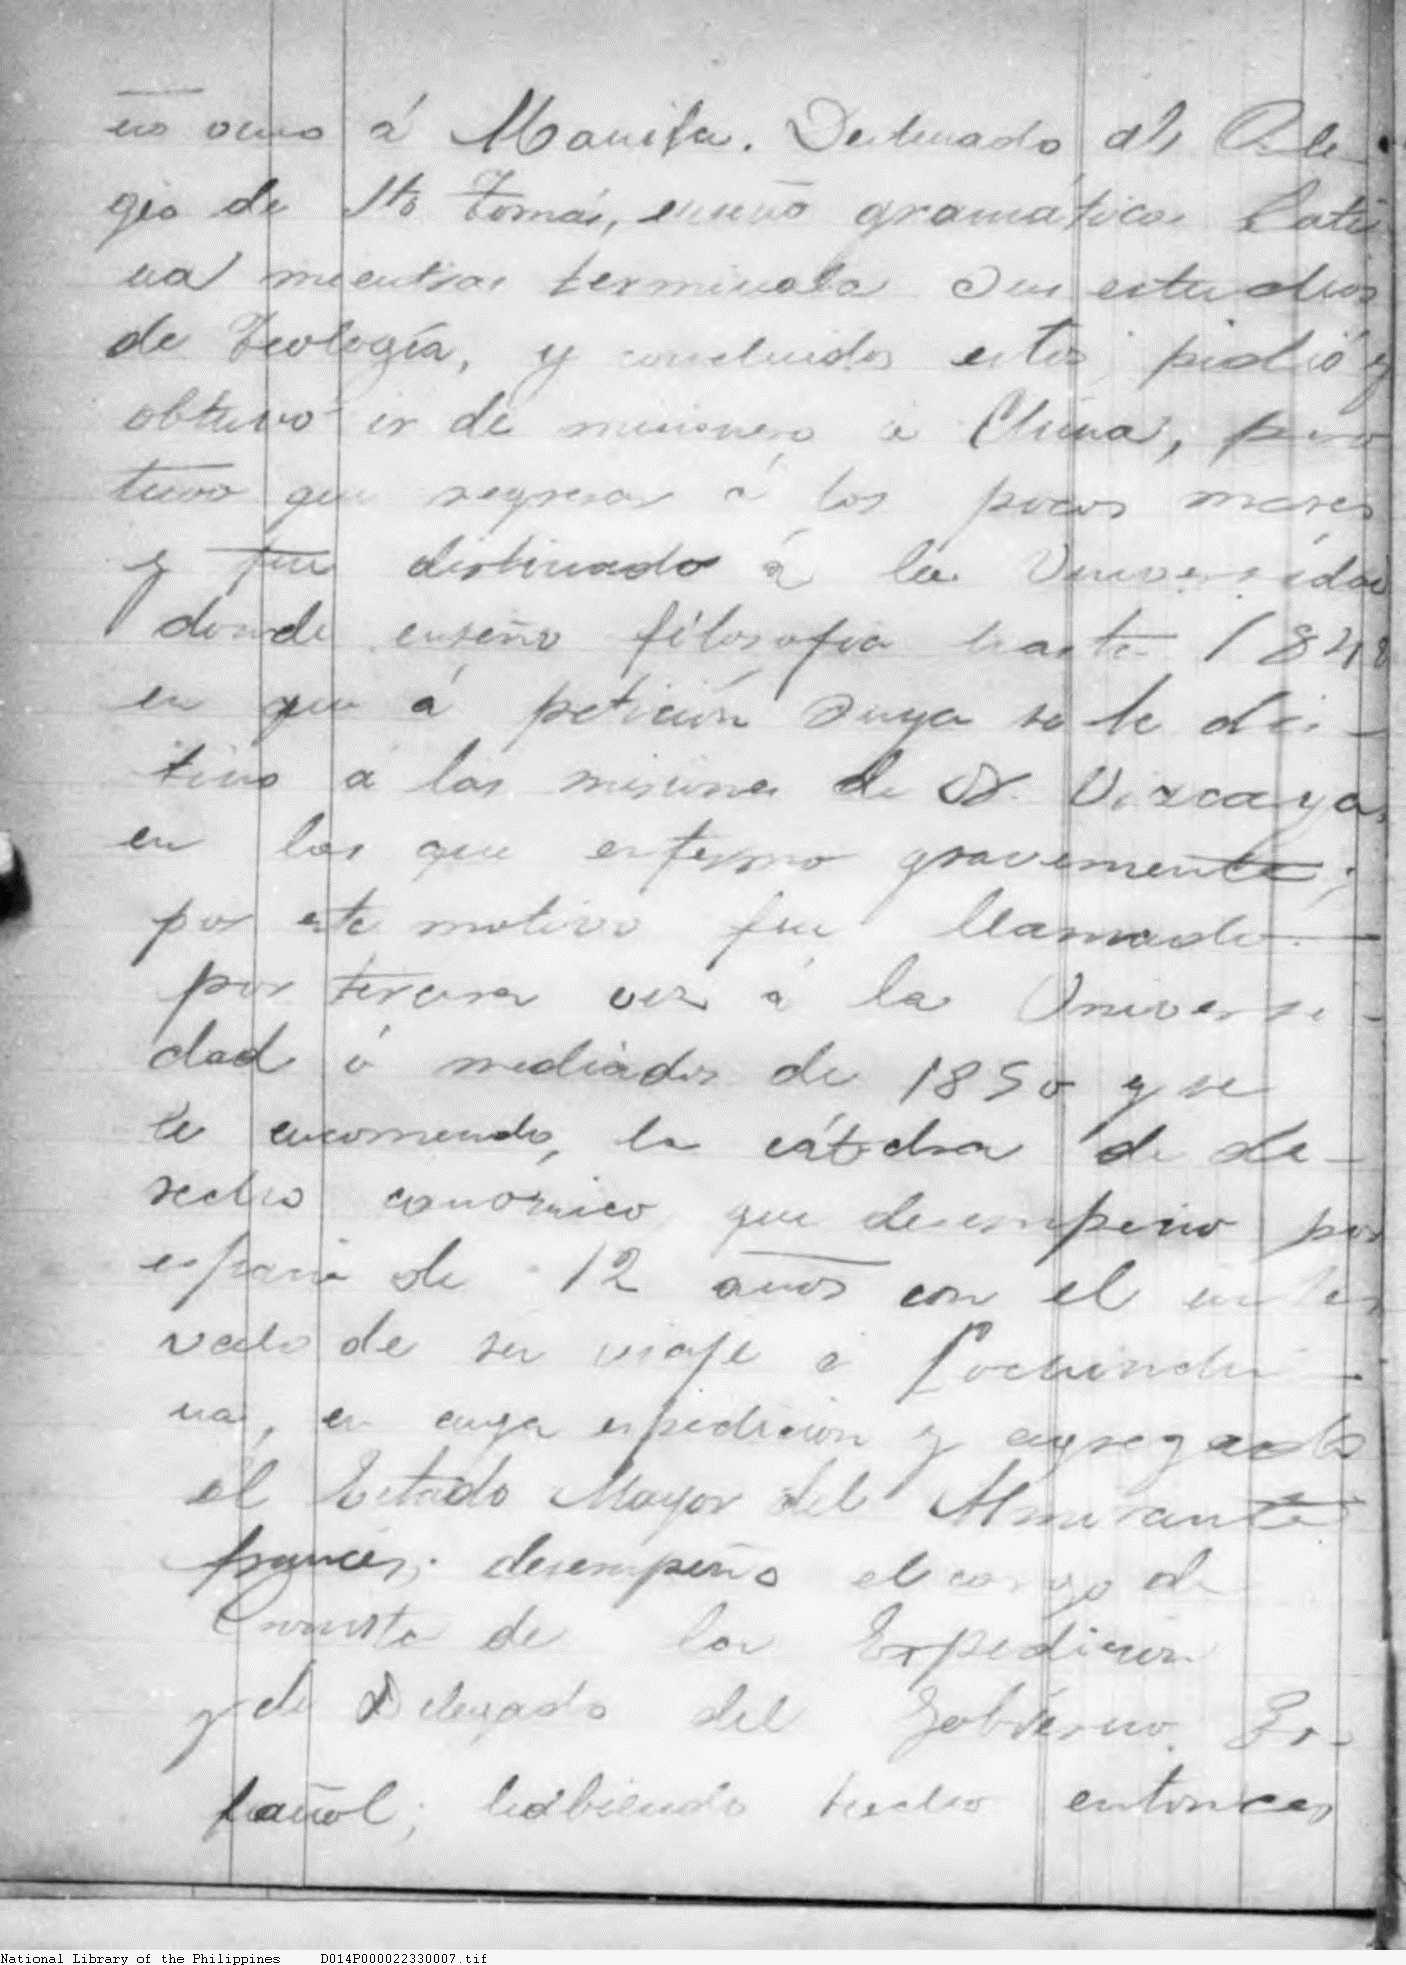 no vino á Manila. Destinado al Cole-
gio de Sto Tomás, enseñó gramática lati
na mientras terminaba sus estudios
de Teología, y concluidos estos, pidió y
obtuvo ir de misionero a China, pero
tuvo que regresar á los pocos meses
y fue destinado á la Universidad
donde enseño filosofia hasta 1848
en que á petición suya se le des-
tino á las misiones de N. Vizcaya
en las que enfermo gravemente;
por este motivo fue llamado
por tercera vez á la Universi-
dad á mediados de 1850 y se
le encomendo, la cátedra de de-
recho canónico que desempeño por
espacio de 12 años con el inter
valo de su viaje á Cochinchi-
na, en cuya expedicion y agregado
al Estado Mayor del Almirante
francés, desempeño el cargo de
Cronista de la Expedicion
y de Delegado del Gobierno Es-
pañol; habiendo hecho entonces
National Library of the Philippines D014P000022330007.tif